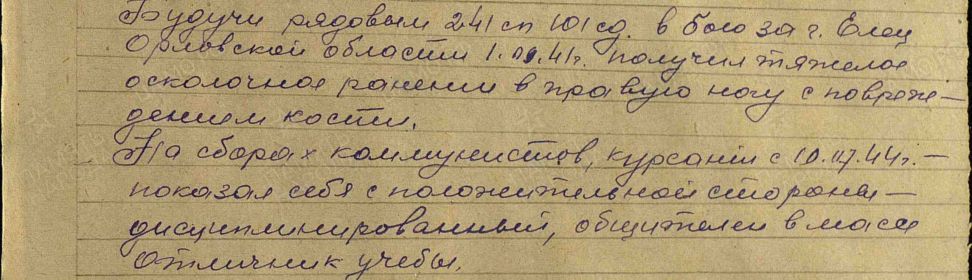 Будучи рядовым 241 сп 101 сд. в бою за г. Елец
Орловской области 1.09.41г. получил тяжелое
осколочное ранении в правую ногу с повреж-
дением кости.
На сборах коммунистов, курсанты с 10.07.44г. -
показал себя с положительной стороны -
дисциплинированный, общителен в массе
отличник учебы.